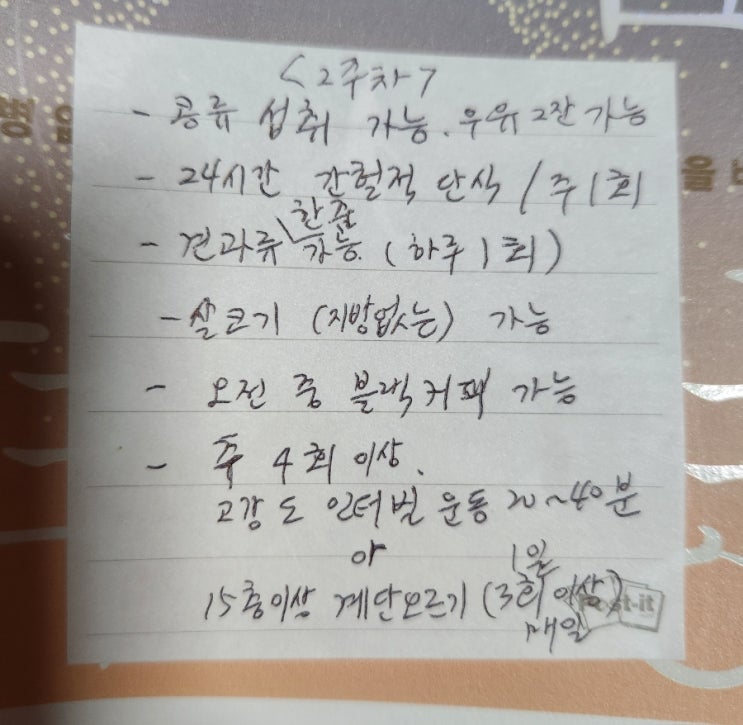 <2주차>
- 콩류 섭취 가능. 우유 2잔 가능
- 24시간 간헐적 단식 / 주 1회
한 줌
- 견과류 가능. (하루 1회)
- 살코기 (지방없는) 가능
- 오전 중 블랙커피 가능
- 주 4회 이상.
고강도 인터벌 운동 20~40분
or
1일
15층이상 계단오르기 (3회 이상)
매일
Post-it
병
을